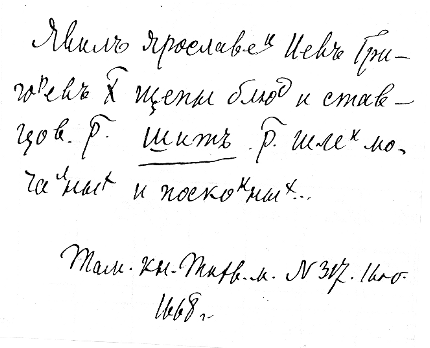 Явилъ ярославец Иевъ Гри-
горевъ х҃ щепы блюд и став-
цов. р҃. шитъ р҃. шлех мо-
чалных и посконых...
Там. кн. Тихв. м. N 317.
1668 г.